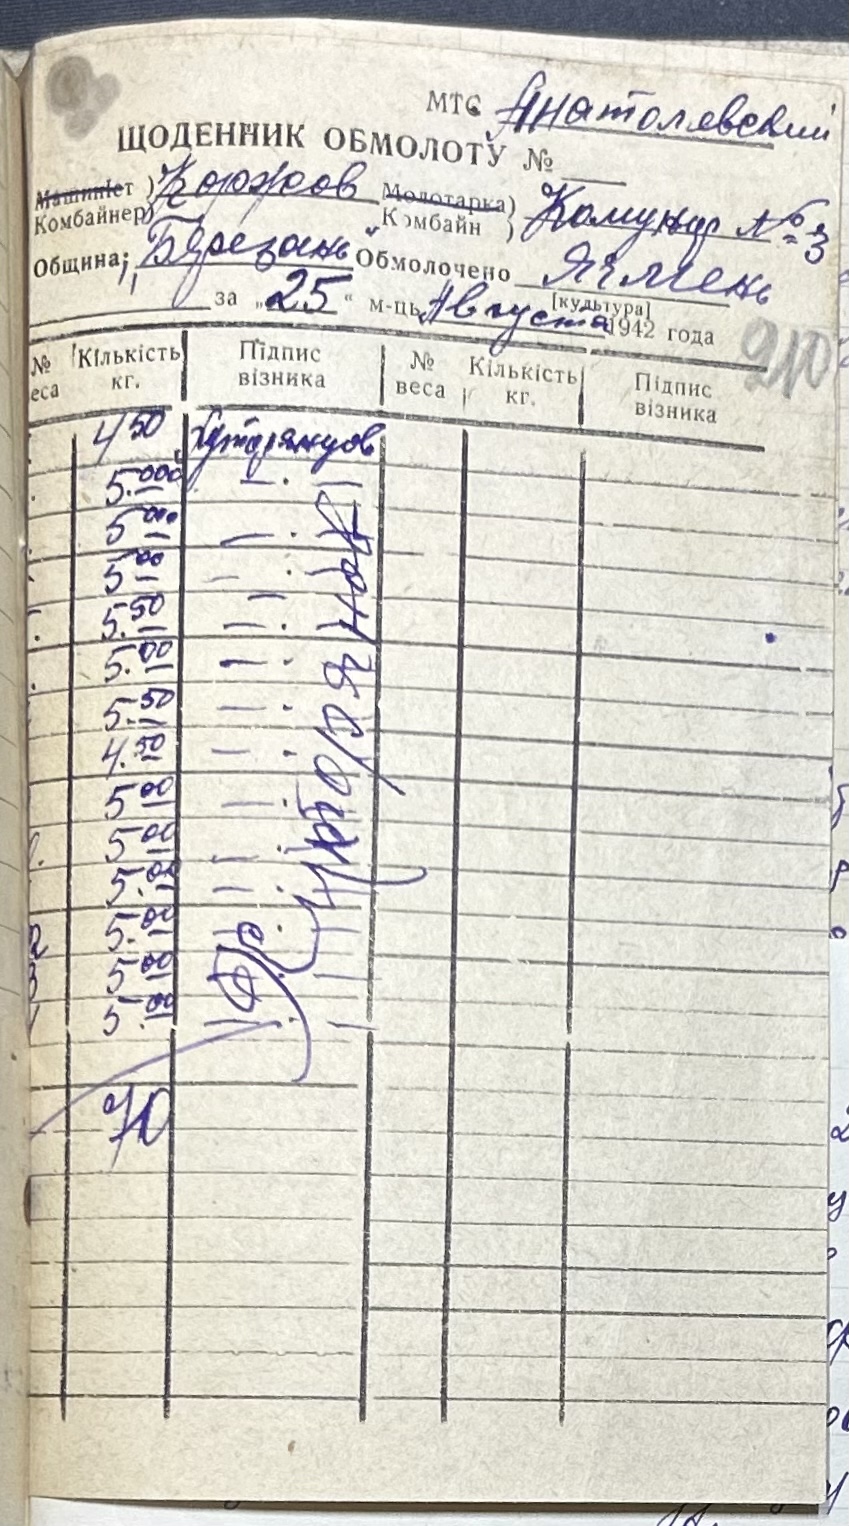 МТС Анатолевский
ЩОДЕННИК ОБМОЛОТУ №
Машиніст ) Коржов Молотарка)
Комбайнер) Комбайн ) Комунар № 3
Община: "Березань" Обмолочено Ячмень
[культура]
за „25“ м-ць Августа 1942 года
210
№ веса Кількість кг. Підпис візника № веса Кількість кг. Підпис візника
4 50
5.000 — . —
5 00 — . —
5 00 — . —
5.50 — . —
5.00 — . —
5.50 — . —
4.50 — . —
5 00 — . —
5 00 — . —
5.00 — . —
2 5.00 — . —
3 5 00 — . —
5.00 — . —
70